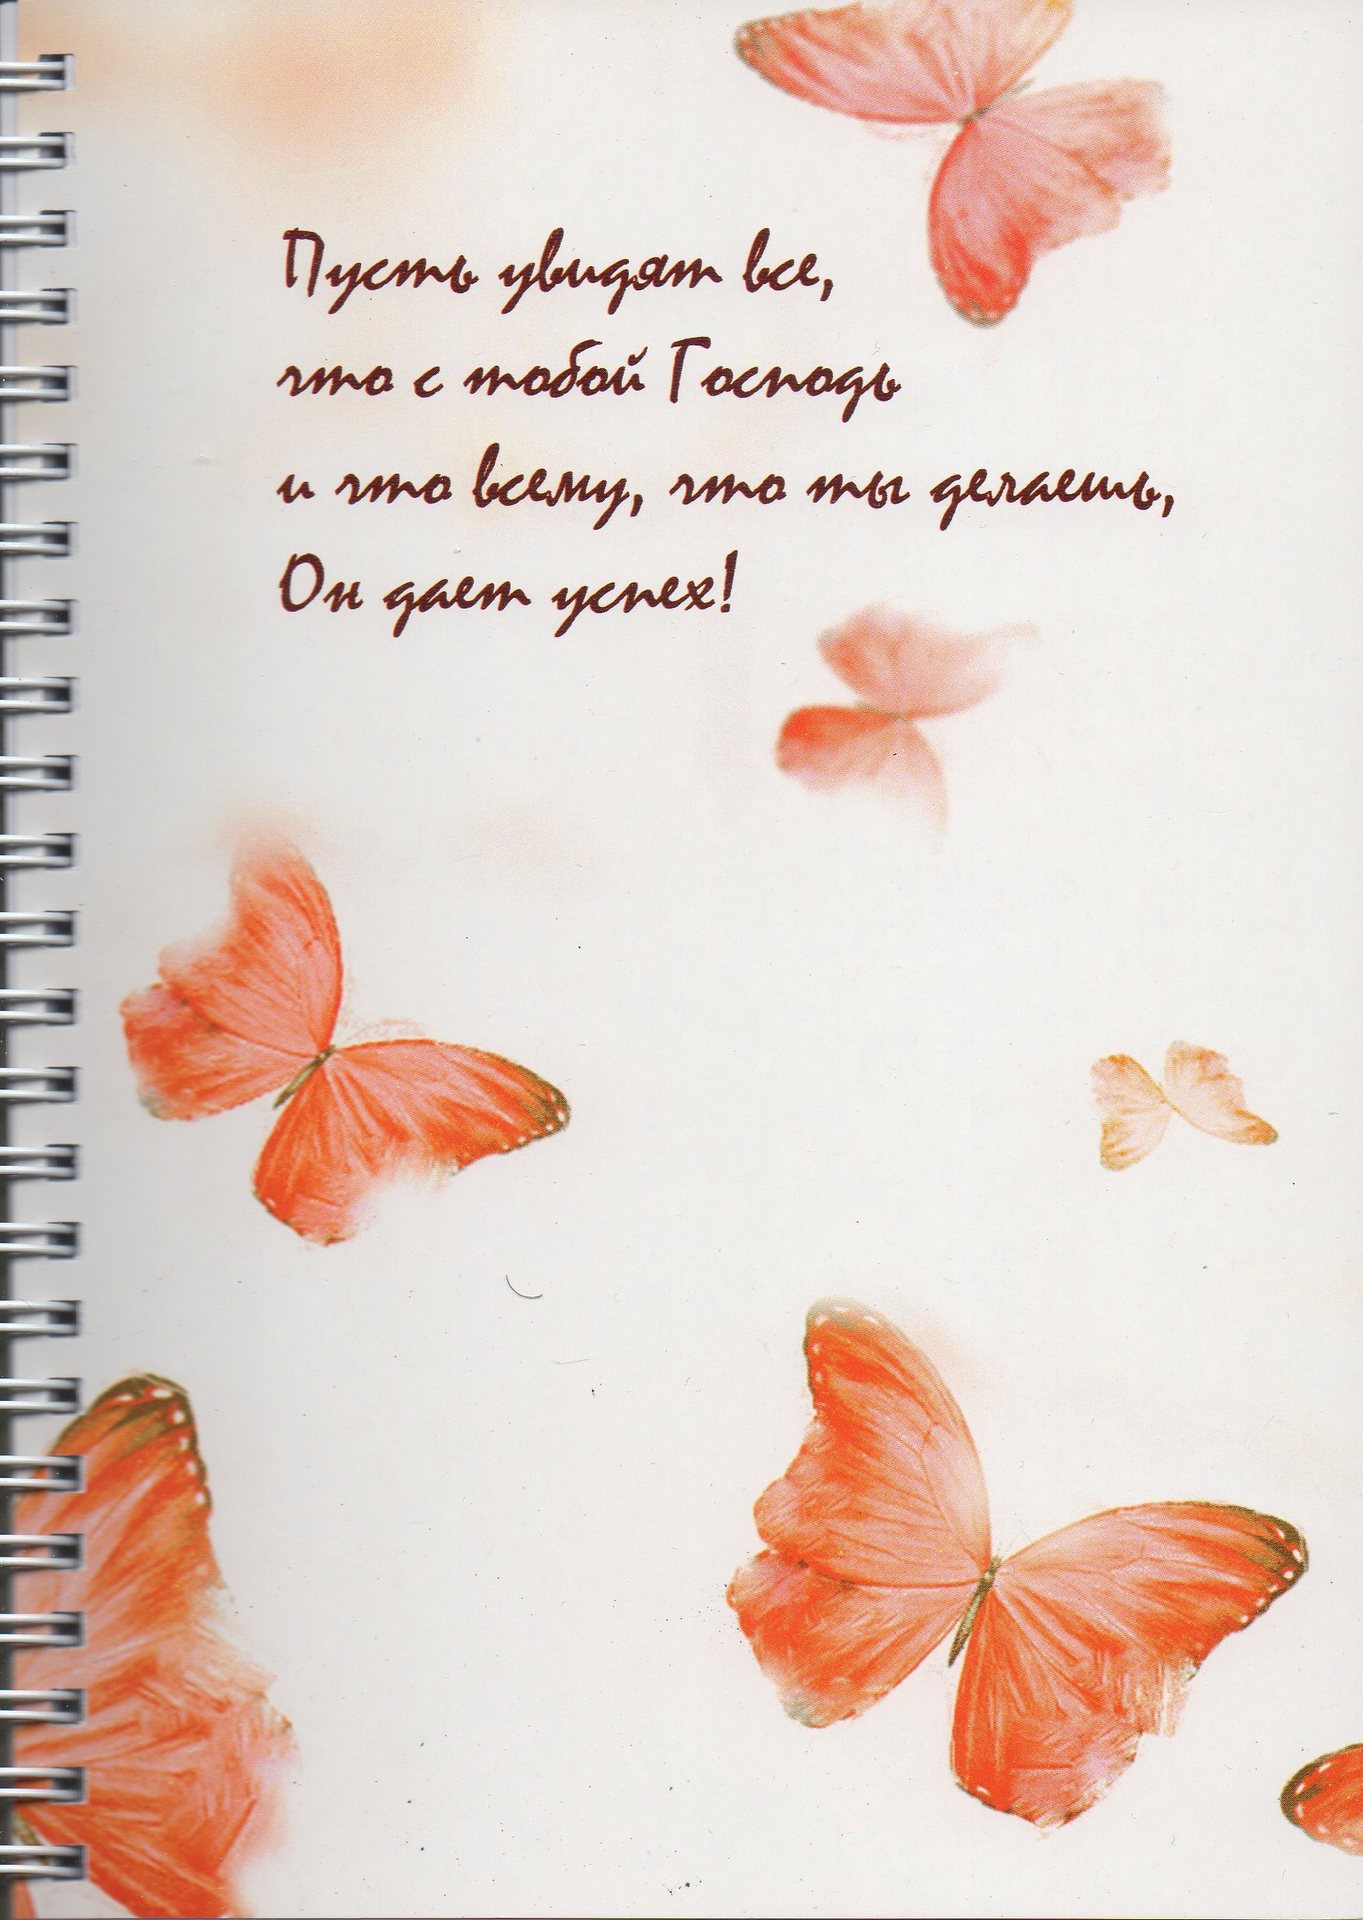 Пусть увидят все,
что с тобой Господь
и что всему, что ты делаешь,
Он дает успех!